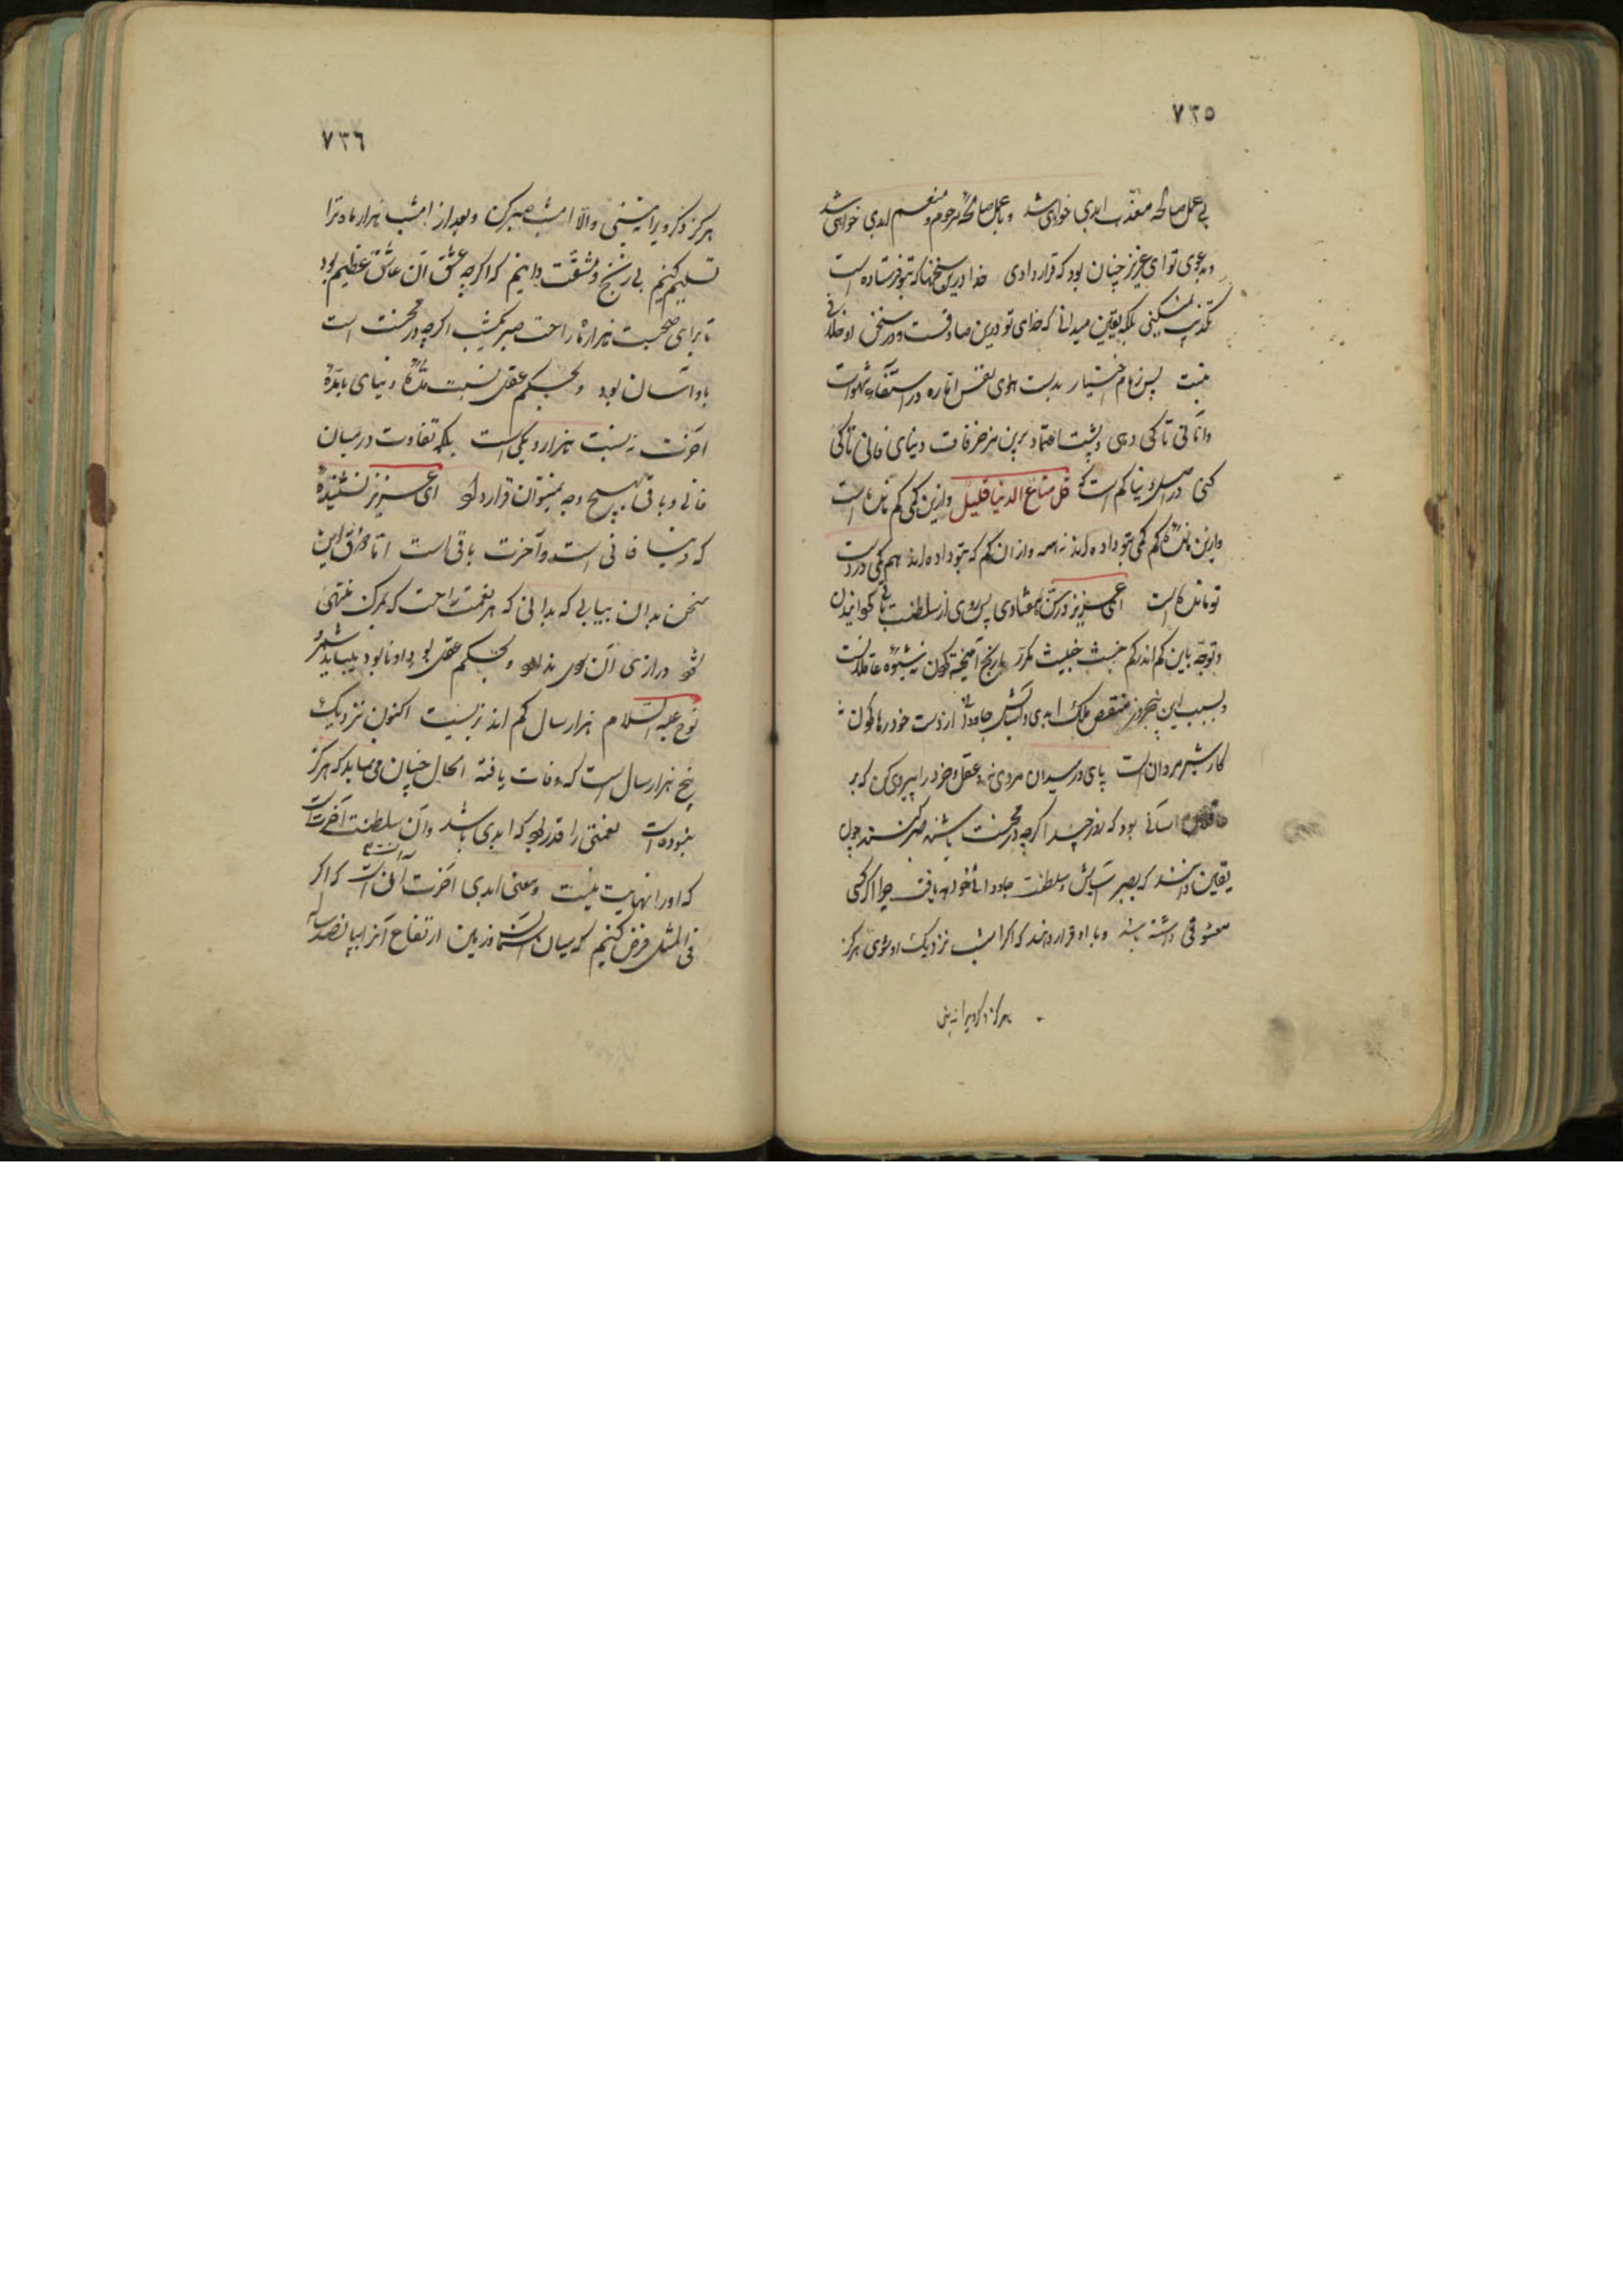 ۷۳۵
بی عمل صالحه معذب ابدی خواهی شد و با عمل صالحه مرحوم و منعم ابدی خواهی شد
و بدعوی تو ای عزیز چنان بود که قرار دادی خدا درین سخنها که بتو فرستاده است
تکذیب نمیکنی بلکه یقین میدانی که خدای تو درین صادقست و در سخن او خلافی
نیست پس زمام اختیار بدست هوای نفس اماره در استیفاء شهوات
و امانی تا کی دهی و پشت اعتماد برین مزخرفات دنیای فانی تا کی
کنی در اصل دنیا کم است که قل متاع الدنیا قلیل و ازین کمی کم مانده است
و ازین مانده کم کمی بتو داده اند نه همه و از ان کم که بتو داده اند هم کمی در دست
تو مانده است ای عزیز درین پس روی از سلطنت باقی گردانیدن
و توجه باین کم اندر کم خبیث مکدر با رنج آمیخته کردن نه شیوه عاقلانست
و بسبب این پنجروز منغص ملک ابدی و آسایش جاودانی از دست خود رها کردن نه
کار شیر مردان است پای در میدان مردی نه و عقل و خرد را پیروی کن که بر
عاقلان آسانی بود که روز چند اگرچه در محنت باشند صبر کنند چون
یقین دانند که بصبر آسایش و سلطنت جاودانی خواهند یافت چرا اگر کسی
معشوقی داشته باشد و با او قرار دهند که اگر امشب نزدیک او شوی هرگز
هرگز دگر ویرا نه بینی
۷۳۶
هرگز دگر ویرا نه بینی و الا امشب صبر کن و بعد از امشب هزار ماه ترا
تسلیم کنیم بی رنج و مشقت دایم که اگرچه عشق آن عاشق عظیم بود
تا برای صحبت هزار ماه راحت صبر یکشب اگرچه در محنت است
باو آسان بود و بحکم عقل نسبت مدت دنیای با مدة
آخرت نه نسبت هزار و یکی است بلکه تفاوت در میان
فانی و باقی بهیچ وجه نمیتوان قرار داد ای عزیز نشنیدهٔ
که دنیا فانی است و آخرت باقی است اما ذوق این
سخن بدان بیابی که بدانی که هر نعمت و راحت که بمرگ منتهی
شود درازی آن سود ندارد و بحکم عقل بود او نابود بیباید شمرد
نوح علیه السلام هزار سال کم اند بزیست اکنون نزدیک
پنج هزار سال است که وفات یافته الحال چنان می نماید که هرگز
نبوده است نعمتی را قدر بود که ابدی باشد و آن سلطنت آخرتست
که او را نهایت نیست و معنی ابدی آخرت آنست که اگر
فی المثل فرض کنیم که میان آسمان و زمین ارتفاع آنرا بپانصد ساله